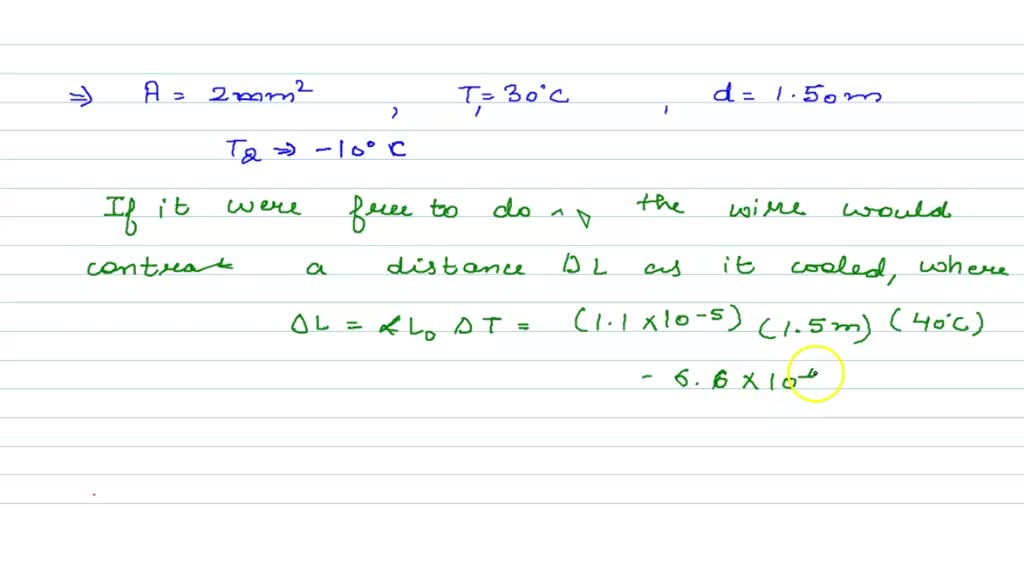 ⇒ A = 2mm², T₁ = 30°C, d = 1.50m
T₂ ⇒ -10°C
If it were free to do the wire would
contract a distance ΔL as it cooled, where
ΔL = αL₀ ΔT = (1.1 × 10⁻⁵) (1.5m) (40°C)
- 6.6 × 10⁻